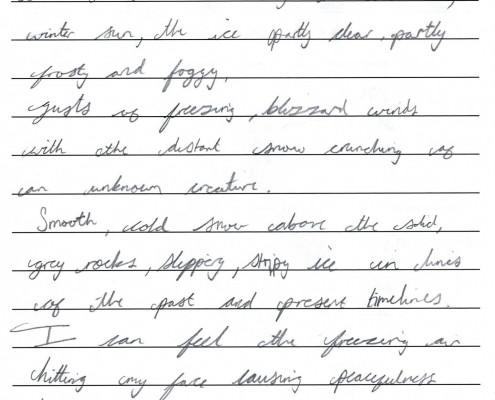 winter sun, the ice partly clear, partly
frosty and foggy,
gusts of freezing, blizzard winds
with the distant snow crunching of
an unknown creature.
Smooth, cold snow above the solid,
grey rocks, slippery, stripy ice in lines
of the past and present timelines.
I can feel the freezing air
hitting my face causing peacefulness